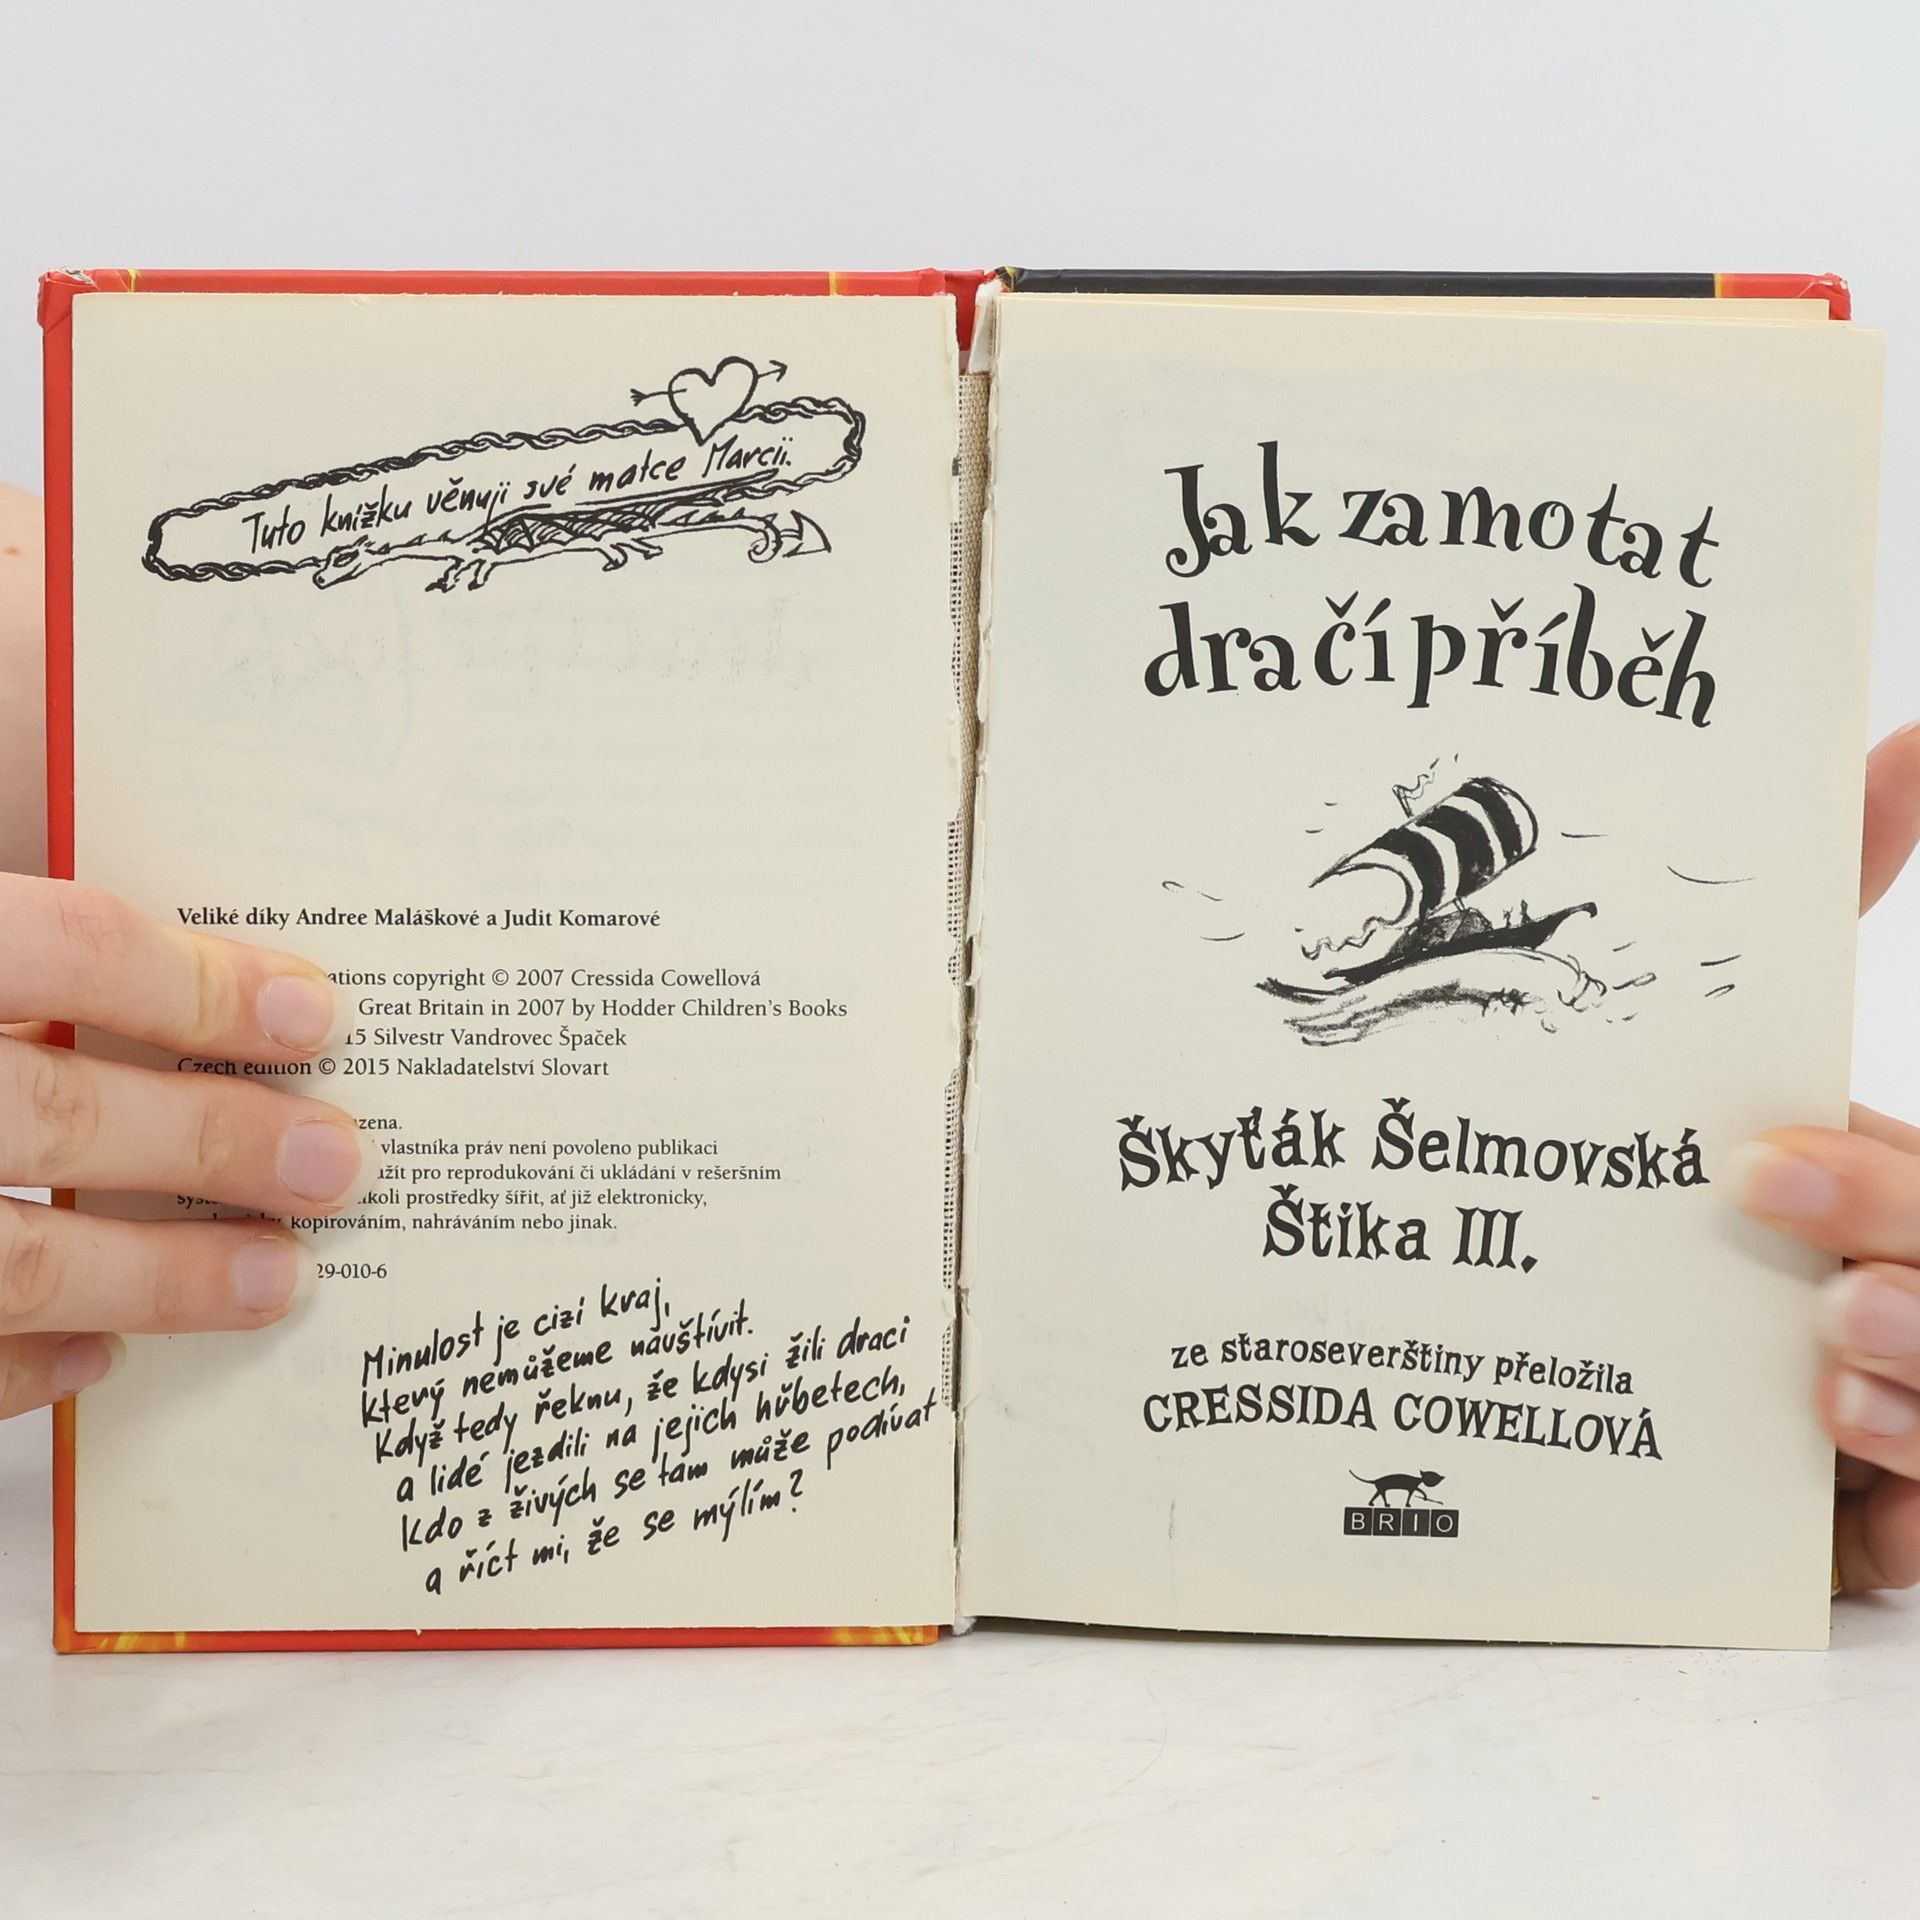 Tuto knížku věnuji své matce Marcii.
Veliké díky Andree Maláškové a Judit Komarové
ations copyright © 2007 Cressida Cowellová
Great Britain in 2007 by Hodder Children's Books
15 Silvestr Vandrovec Špaček
Czech edition © 2015 Nakladatelství Slovart
zena.
vlastníka práv není povoleno publikaci
žít pro reprodukování či ukládání v rešeršním
koli prostředky šířit, ať již elektronicky,
kopírováním, nahráváním nebo jinak.
29-010-6
Minulost je cizí kraj,
který nemůžeme navštívit.
Když tedy řeknu, že kdysi žili draci
a lidé jezdili na jejich hřbetech,
kdo z živých se tam může podívat
a říct mi, že se mýlím?
Jak zamotat
dračí příběh
Škyťák Šelmovská
Štika III.
ze staroseverštiny přeložila
CRESSIDA COWELLOVÁ
BRIO